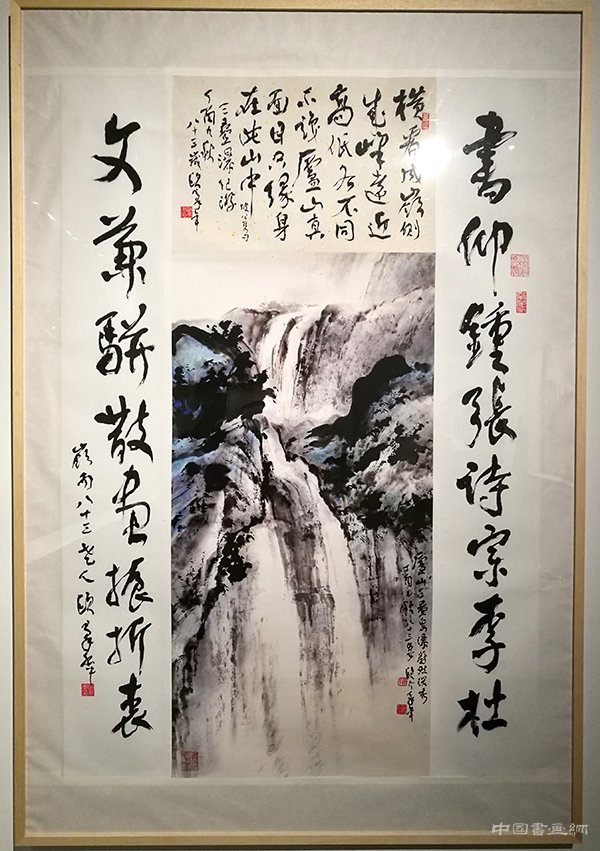 書仰鍾張诗宗李杜
橫看成嶺側
成峰遠近
高低各不同
不識廬山真
面目只緣身
在此山中
三疊瀑紀游
丁酉秋
八十三歲歐豪年
廬山三疊泉瀑
歐豪年
文兼駢散畫振折衷
嶺南八十三老人歐豪年
中国書画網